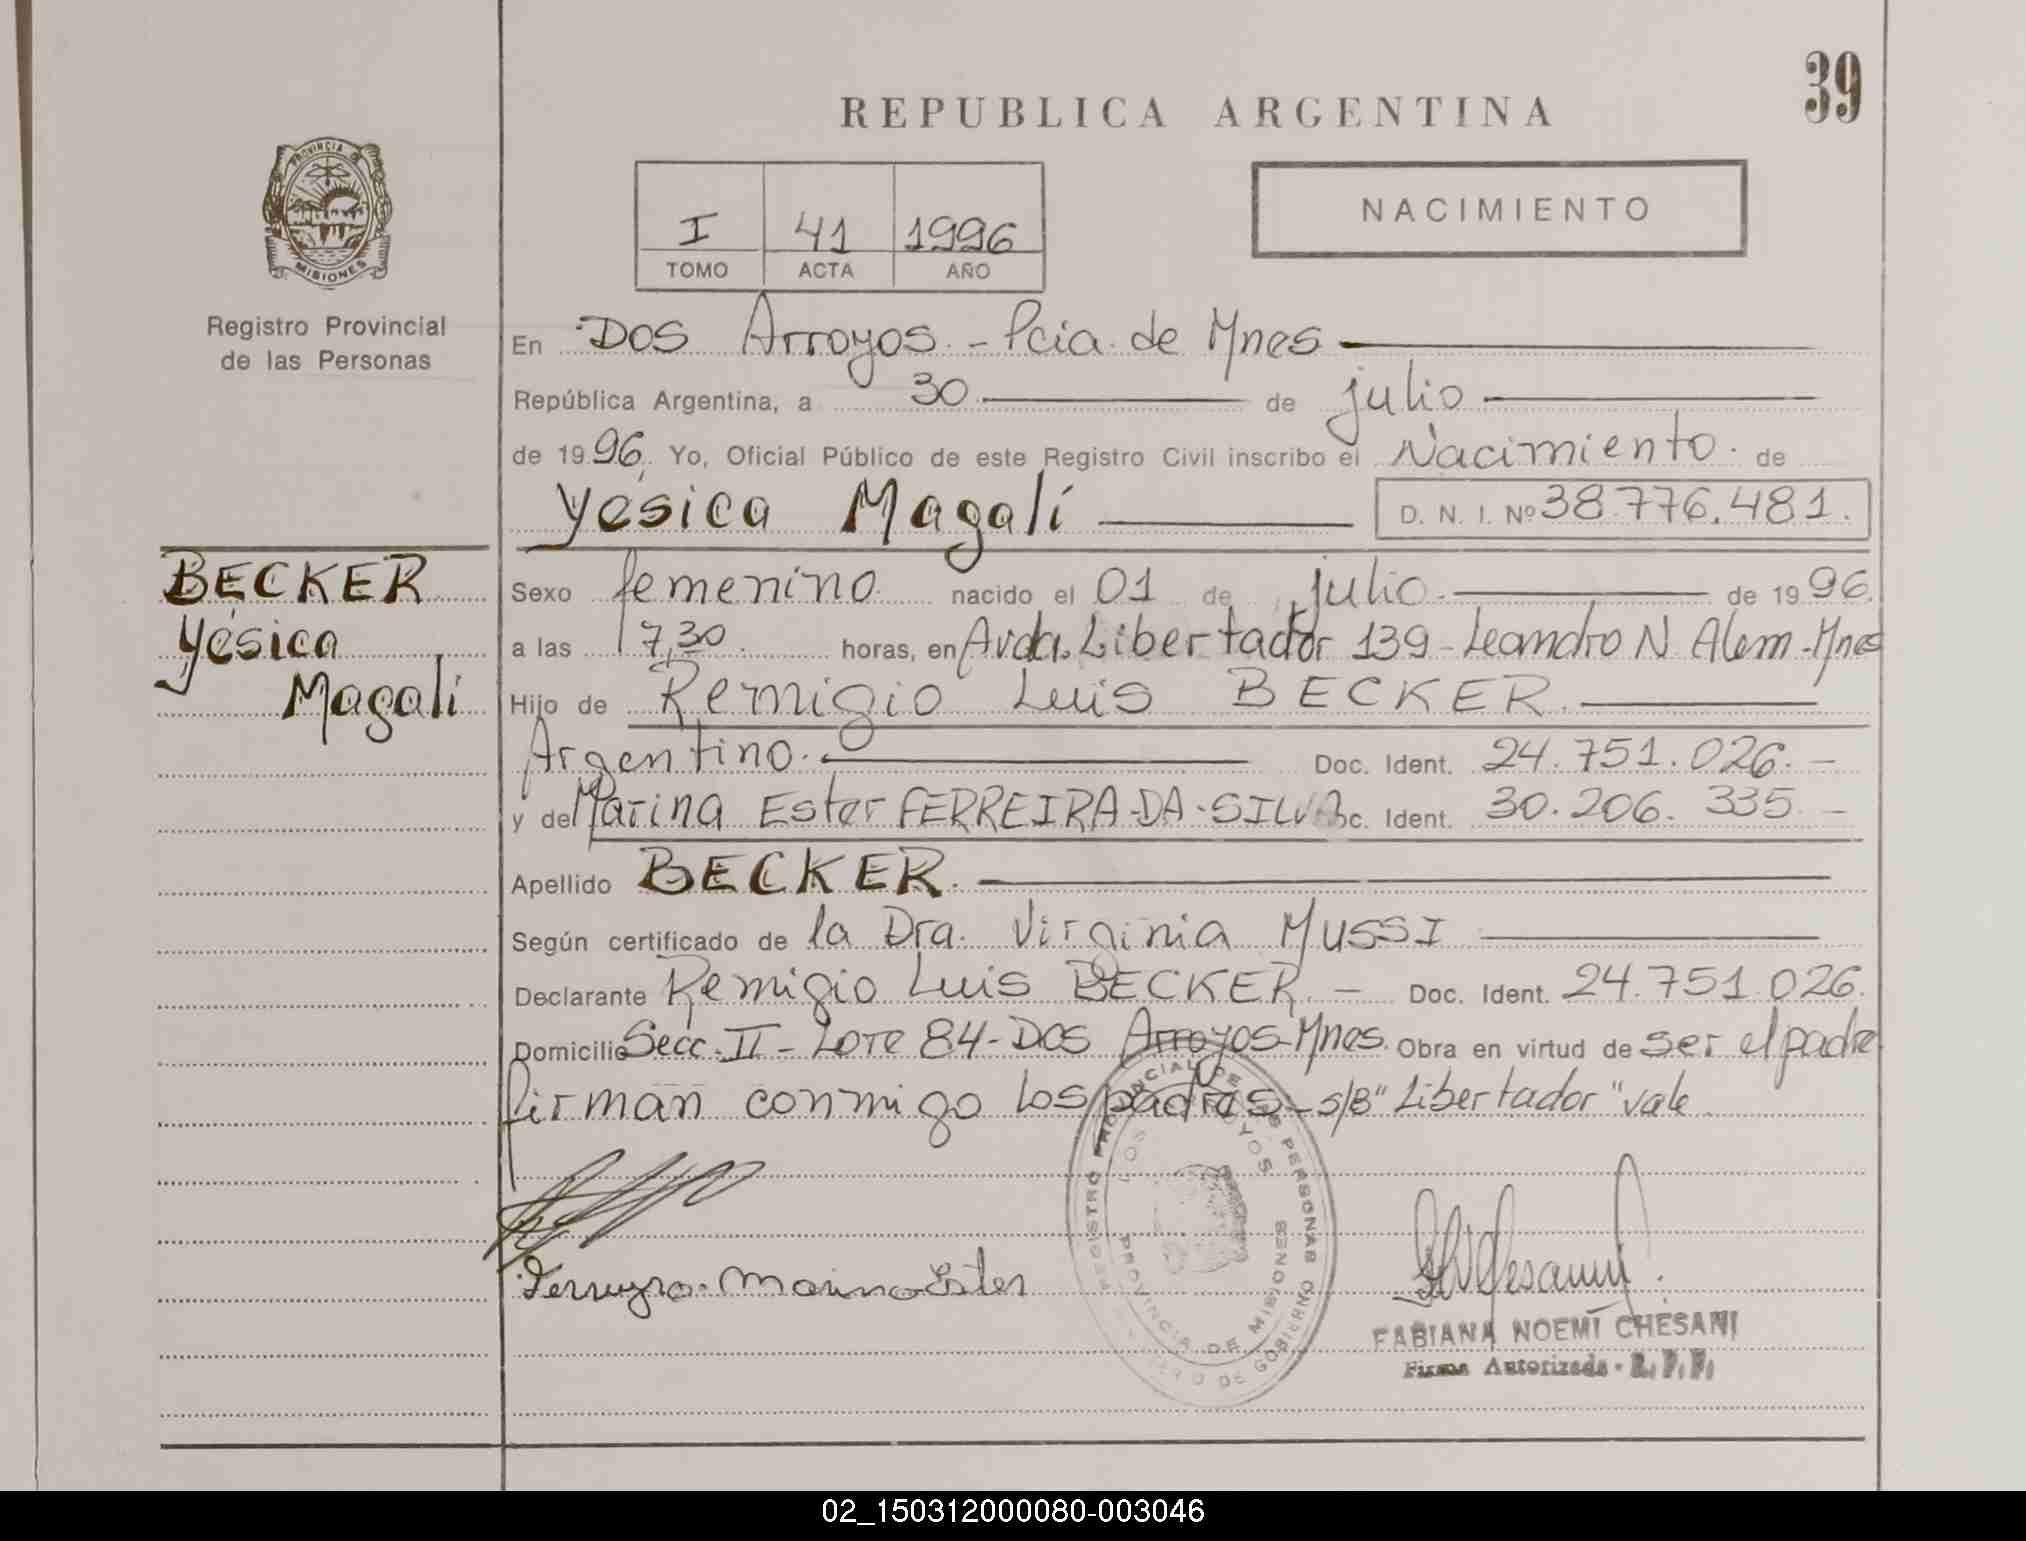 39
REPUBLICA ARGENTINA
PROVINCIA DE
MISIONES
Registro Provincial
de las Personas
I 41 1996
TOMO ACTA AÑO
NACIMIENTO
En Dos Arroyos - Pcia de Mnes
República Argentina, a 30 de julio
de 1996. Yo, Oficial Público de este Registro Civil inscribo el Nacimiento de
Yésica Magalí D. N. I. Nº 38.776.481.
BECKER
Yésica
Magalí
Sexo femenino nacido el 01 de julio de 1996.
a las 17,30 horas, en Avda. Libertador 139 - Leandro N Alem - Mnes
Hijo de Remigio Luis BECKER
Argentino. Doc. Ident. 24.751.026. -
y de Marina Ester FERREIRA-DA-SILVA Doc. Ident. 30.206.335 -
Apellido BECKER.
Según certificado de la Dra. Virginia MUSSI
Declarante Remigio Luis BECKER - Doc. Ident. 24.751.026.
Domicilio Secc. II - Lote 84 - Dos Arroyos - Mnes. Obra en virtud de ser el padre
firman conmigo los padres - s/B "Libertador" vale
REGISTRO PROVINCIAL DE LAS PERSONAS
DOS ARROYOS
PROVINCIA DE MISIONES
DE GOBIERNO
Marino Ester
FABIANA NOEMI CHESANI
Firma Autorizada - R. P. P.
02_150312000080-003046